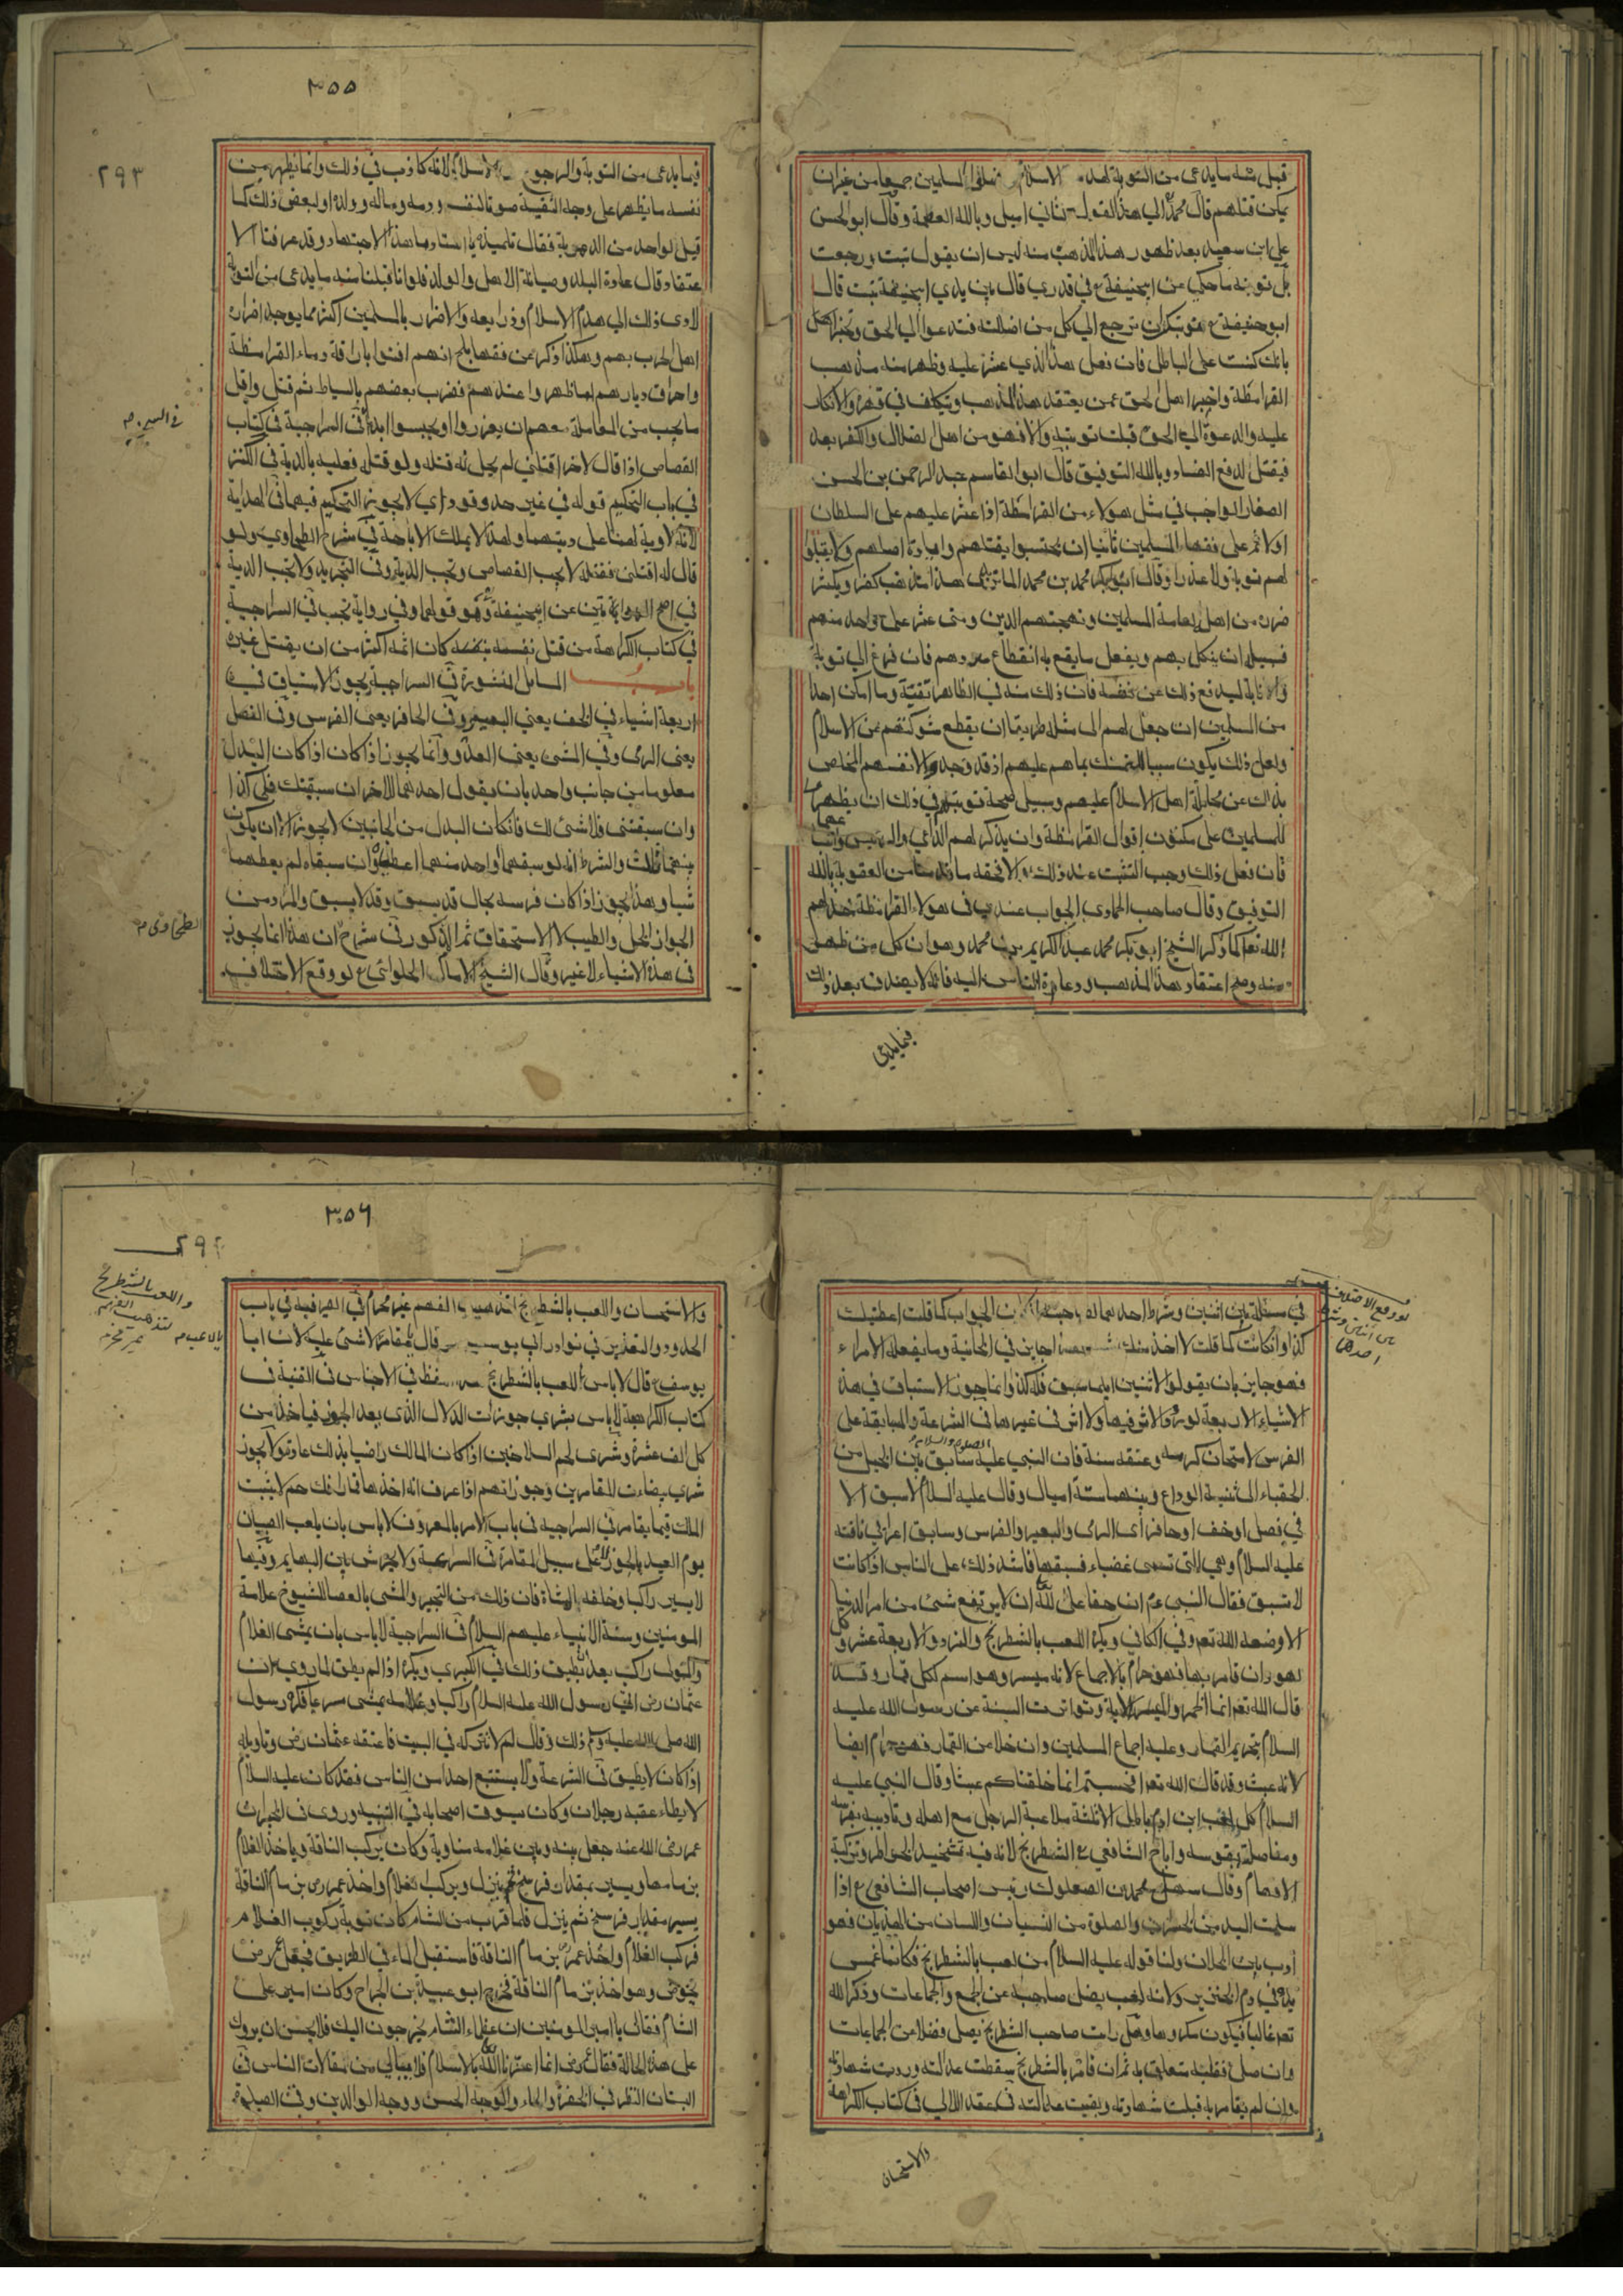 قبل منه ما يدعى من التوبة لهدم الاسلام المسلمين جميعا من غير ان
يمكن قتلهم قال محمد الي هذا القول اميل وبالله العصمة وقال ابو الحسن
علي ابن سعيد بعد ظهور هذا المذهب منه ليس ان يقول تبت ورجعت
بل توبته ما حكي عن ابيحنيفة ع في قدري قال بين يدي ابيحنيفة تبت قال
ابو حنيفة ع توبتك ان ترجع الي كل من اضللته فتدعوا الي الحق وتخبرهم
بانك كنت على الباطل فان فعل هذا الذي عثر عليه وظهر منه مذهب
القرامطة واخبر اهل الحق عمن يعتقد هذا المذهب وتكلف في قهره والانكار
عليه والدعوة الي الحق قبلت توبته والا فهو من اهل الضلال والكفر بعد
فيقتل لدفع الفساد وبالله التوفيق قال ابو القاسم عبد الرحمن بن الحسن
الصفار الواجب في مثل هولاء من القرامطة اذا عثر عليهم على السلطان
اولا ثم على فقهاء المسلمين ثانيا ان يحتسبوا بقتلهم وابادة اصلهم ولا يقبلوا
لهم توبة ولا عذرا وقال ابو بكر محمد بن محمد هذا مذهب كفر ويكثر
ضرره من اهل لعامة المسلمين الدين ومتى عثر على واحد منهم
فسبيله ان ينكل بهم ويفعل ما يقع به انقطاع فان فزع الي توبة
والانابة ليدفع ذلك عن نفسه فان ذلك منه في الظاهر تقية وما امكن احدا
من المسلمين ان جعل لهم الى مثله طريقا ان يقطع شوكتهم عن الاسلام
ولعل ذلك يكون سببا بما هم عليهم اذ قد وجدوا لانفسهم الخلاص
بذلك عن اهل الاسلام عليهم وسبيل صحة توبتهم في ذلك ان يظهر
للمسلمين على مكنون اقوال القرامطة وان يذكر لهم الداعي
فان فعل ذلك وجب التثبت عند ذلك والا تحقه ما قدمنا من العقوبة بالله
التوفيق وقال صاحب الحاوي الجواب عندي في هولاء القرامطة خذلهم
الله تعم كما ذكر الشيخ ابو بكر محمد عبد الكريم بن محمد وهو ان كل من ظهر
منه وصح اعتقاد هذا المذهب ودعا الناس اليه فانه لا يصدق بعد ذلك
فيما يدعي
٣٥٥
٢٩٣
فيما يدعى من التوبة والرجوع الاسلام لانه كاذب في ذلك وانما يظهر من
نفسه ما يظهر على وجه التقية صونا لنفسه ودمه وماله وولده او لبعض ذلك كما
قيل لواحد من الدهرية فقال تلميذه يا استاد ما هذا الاجتهاد وقد عرفنا الا
عتقاد قال عادة البلد وصيانة الاهل والولد فلو انا قبلنا منه ما يدعى من التوبة
لادى ذلك الي هدم الاسلام وذرايعه والاضرار بالمسلمين اكثر مما يوجد اضراره
اهل الحرب بهم وهكذا ذكر عن فقها بلخ انهم افتوا باراقة دماء القرامطة
واحراق ديارهم لما ظهروا عندهم فضرب بعضهم بالسياط ثم قتل واقل
ما يجب من المعاملة معهم ان يعزروا او يحبسوا ابدا في السراجية في كتاب
في السير م
القصاص اذا قال لاخر اقتلني لم يحل له قتله ولو قتله فعليه بالدية في الكنز
في باب التحكيم قوله في غير حد وقود اي لا يجوز التحكيم فيهما في الهداية
لانه لا ولاية لهما على دمهما ولهذا لا يملك الاباحة في شرح الطحاوي ولو
قال له اقتلني فقتله لا يجب القصاص وتجب الدية وفي التجريد ولا تجب الدية
في اصح الروايتين عن ابيحنيفة وهو قولهما وفي رواية تجب في السراجية
في كتاب الكراهة من قتل نفسه كان اثمه اكثر من ان يقتل غيره
باب المسايل المنثورة في السراجية يجوز الاستباق في
اربعة اشياء في الخف يعني البعير وفي الحافر يعني الفرس وفي النصل
يعنى الرمى وفي المشى يعنى العدو وانما يجوز اذا كان اذا كان البدل
معلوما من جانب واحد بان يقول احدهما للاخر ان سبقتك فلي كذا
وان سبقتني فلا شئ لك فان كان البدل من الجانبين لا يجوز الا ان يكون
بينهما ثالث والشرط انه لو سبقهما واحد منهما اعطياه وان سبقاه لم يعطهما
شيا وهذا يجوز اذا كان فرسه بحال قد يسبق وقد لا يسبق والمراد من
الجواز الحل والطيب لا الاستحقاق ثم المذكور في شرح ان هذا انما يجوز
الطحاوى م
في هذه الاشياء لا غير وقال الشيخ الامام الحلوائي ع لو وقع الاختلاف
لو وقع الاختلاف
بين اثنين وشرط
احدهما
في مسئلة بين اثنين وشرط احدهما لصاحبه ان الجواب كما قلت اعطيتك
كذا وان كانت كما قلت لا اخذ منك شيئا جايز في الخانية وما يفعله الامراء
فهو جايز بان يقولوا لاثنين ايهما سبق فله كذا وانما يجوز الاستباق في هذه
الاشياء الاربعة لورود الاثر فيها ولا اثر في غيرها في الشرعة والمسابقة على
الفرس لامتحان كرمه وعتقه سنة فان النبي عليه الصلوة والسلام سابق بين الخيل من
الحفياء الى ثنية الوداع وبينهما ستة اميال وقال عليه السلام لا سبق الا
في نصل او خف او حافر اى الرمى والبعير والفرس وسابق اعرابي ناقته
عليه السلام وهي التى تسمى غضباء فسبقها فاشتد ذلك على الناس اذا كانت
لا تسبق فقال النبي عم ان حقا على الله ان لا يرتفع شئ من امر الدنيا
الا وضعه الله تعم وفي الكافي ويكره اللعب بالشطرنج والنرد والاربعة عشر وكل
لهو وان قامر بها فهو حرام بالاجماع لانه ميسر وهو اسم لكل قمار وقد
قال الله تعم انما الخمر والميسر الاية وتواترت السنة عن رسول الله عليه
السلام بتحريم القمار وعليه اجماع المسلمين وان خلا من القمار فهو حرام ايضا
لانه عبث وقد قال الله تعم افحسبتم انما خلقناكم عبثا وقال النبي عليه
السلام كل لعب ابن ادم باطل الا ثلثة ملاعبة الرجل مع اهله وتاديبه بفرسه
ومناضلته بقوسه واباح الشافعي ع الشطرنج لانه فيه تشحيذ الخواطر وتزكية
الافهام وقال سهل بن محمد بن الصعلوك رئيس اصحاب الشافعي ع اذا
سلمت اليد من الخسران والصلوة من النسيان واللسان من الهذيان فهو
ادب بين الخلان ولنا قوله عليه السلام من لعب بالشطرنج فكانما غمس
يده في دم الخنزير ولانه لعب يضل صاحبه عن الجمع والجماعات وذكر الله
تعم غالبا فيكون مكروها وهل رايت صاحب الشطرنج يصل فضلا عن الجماعات
وان صلى فقلبه متعلق به ثم ان قامر بالشطرنج سقطت عدالته وردت شهادته
وان لم يقامر به قبلت شهادته وبقيت عدالته في عقد اللالي في كتاب الكراهة
والاستحسان
٣٥٦
٢٩٤
والاستحسان واللعب بالشطرنج لتذهيب الفهم غير محرم في الصيرفية في باب
واللعب بالشطرنج
لتذهيب الفهم
غير محرم
الحدود والتعذير في نوادر ابي يوسف قال بالمقامر لا شئ عليه لان ابا
بالاعب م
يوسف ع قال لا باس باللعب بالشطرنج في الاجناس في القنية في
كتاب الكراهية لا باس بشري جوزات الدلال الذي يعد الجوز فياخذ من
كل الف عشرة وشرى لحم السلاخين اذا كان المالك راضيا بذلك عادة ولا يجوز
شري بيضات المقامرين وجوزاتهم اذا عرف انه اخذها قمارا لا يثبت
الملك فيما يقامر في السراجيه في باب الامر بالمعروف لا باس بان يلعب الصبيان
يوم العيد بالجوز لا على سبيل المقامرة في السراجية ولا يحرش بين البهايم وفيها
لا يسير راكبا وخلفه المشاة فان ذلك من التجبر والمشى بالعصا للشيوخ علامة
المومنين وسنة الانبياء عليهم السلام في السراجية لا باس بان يمشى الغلام
راكب بعد ان يطيق ذلك في الكبرى ويكره اذا لم يطق لما روي ان
عثمان رض اتي رسول الله عليه السلام راكبا وغلامه يمشى سرعا فكره رسول
الله صلى الله عليه وسلم ذلك وقال لم لا تتركه في البيت فاعتقه عثمان رض وتاويله
اذا كان لا يطيق في الشرعة ولا يستتبع احدا من الناس فقد كان عليه السلام
لا يطاء عقبه رجلان وكان يسوق اصحابه في التنبيه وروى في الخبر ان
عمر رضى الله عنه جعل بينه وبين غلامه مناوبة وكان يركب الناقة وياخذ الغلام
بزمامها ويسير مقدار فرسخ ثم ينزل ويركب الغلام واخذ عمر رض بزمام الناقة
يسير مقدار فرسخ ثم ينزل فلما قرب من الشام كان نوبة ركوب الغلام
فركب الغلام واخذ عمر رض بزمام الناقة فاستقبل الماء في الطريق فجعل عمر رض
يخوض وهو اخذ بزمام الناقة فخرج ابو عبيدة بن الجراح وكان امير على
الشام فقال يا امير المومنين ان عظماء الشام يخرجون اليك فلا يحسن ان يروك
على هذه الحالة فقال عمر رض انما اعزنا الله بالاسلام فلا نبالي من مقالات الناس في
البستان النظر في الخضرة والماء والوجه الحسن ووجه الوالدين وفي الصلوة